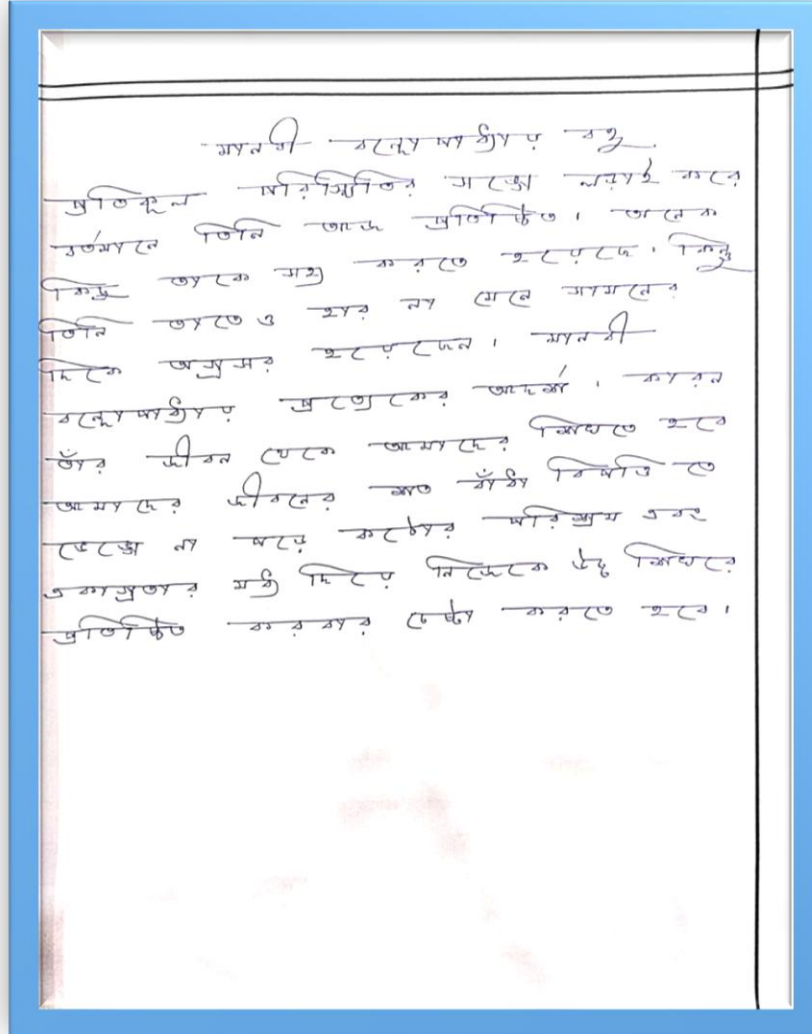 মানবী বন্দ্যোপাধ্যায় বহু
প্রতিকূল পরিস্থিতির সঙ্গে লড়াই করে
বর্তমানে তিনি আজ প্রতিষ্ঠিত। অনেক
কিছু তাকে সহ্য করতে হয়েছে। কিন্তু
তিনি তাতেও হার না মেনে সামনের
দিকে অগ্রসর হয়েছেন। মানবী
বন্দ্যোপাধ্যায় প্রত্যেকের আদর্শ। কারন
তাঁর জীবন থেকে আমাদের শিখতে হবে
আমাদের জীবনের শত বাঁধা বিপত্তি তে
ভেঙ্গে না পড়ে কঠোর পরিশ্রম এবং
একাগ্রতার মধ্য দিয়ে নিজেকে উচ্চ শিখরে
প্রতিষ্ঠিত করবার চেষ্টা করতে হবে।